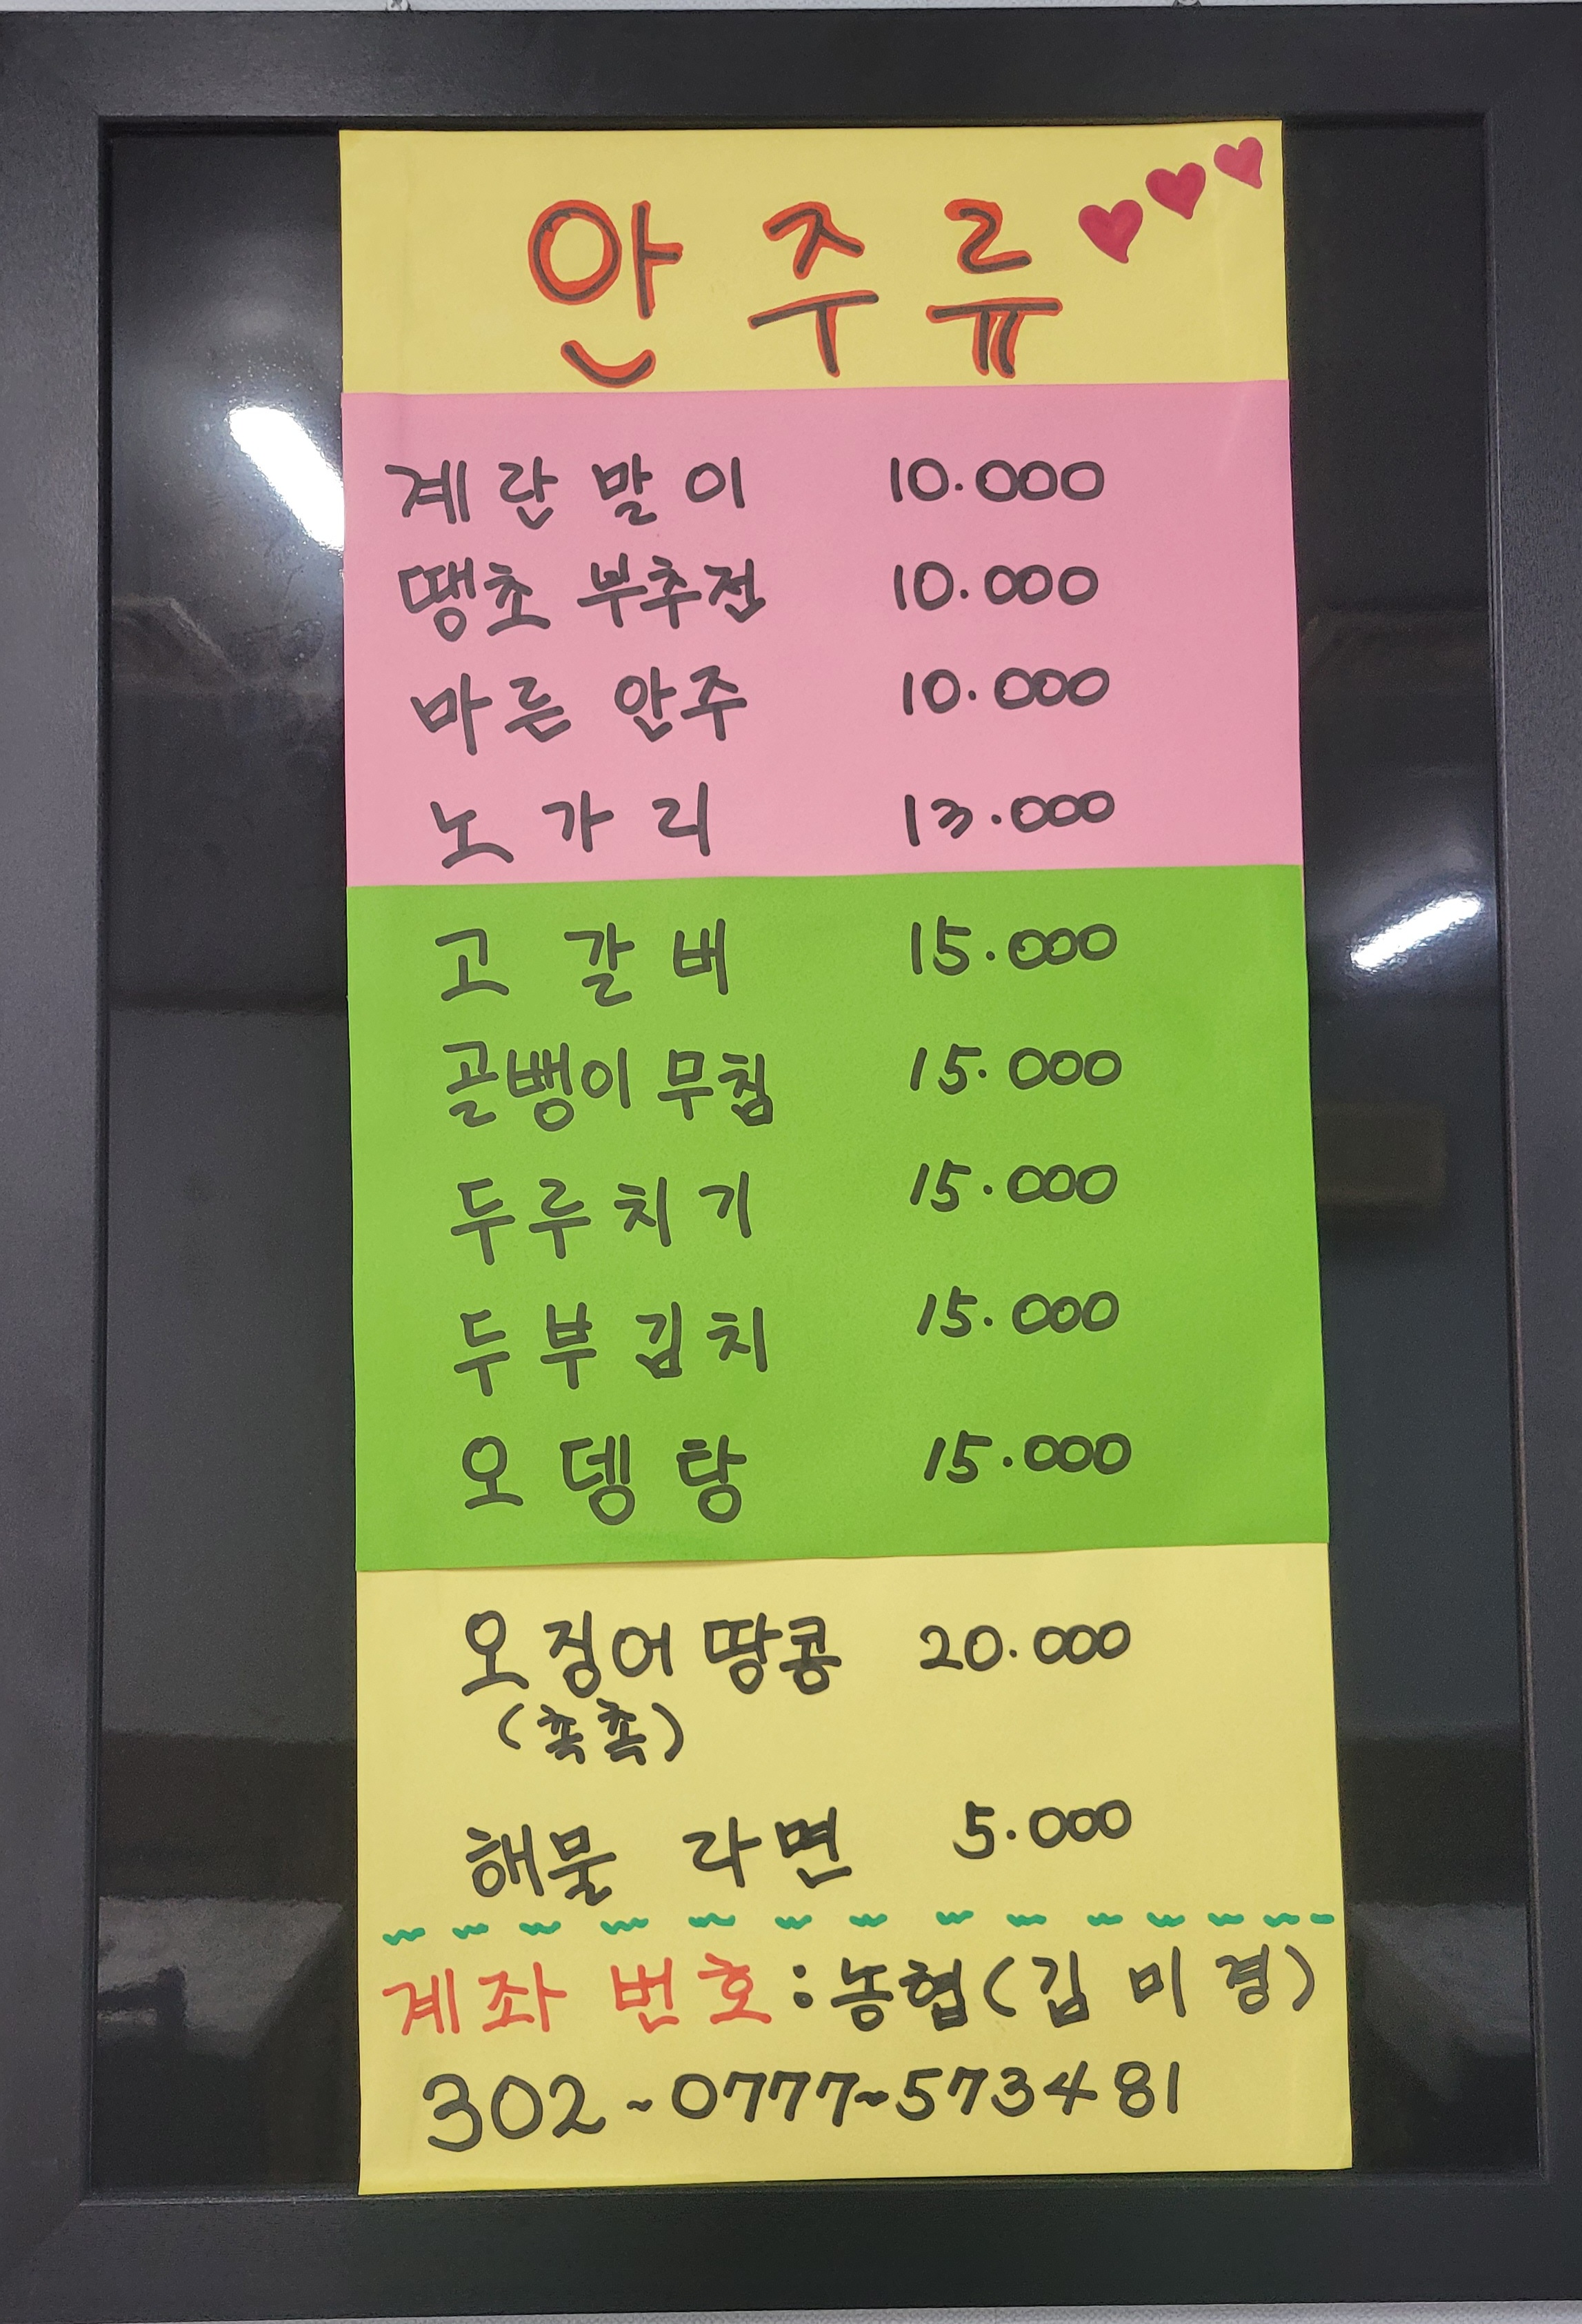 안주류
계란말이 10.000
땡초 부추전 10.000
마른 안주 10.000
노가리 13.000
고갈비 15.000
골뱅이 무침 15.000
두루치기 15.000
두부김치 15.000
오뎅탕 15.000
오징어 땅콩 20.000
(촉촉)
해물 라면 5.000
계좌 번호 : 농협(김미경)
302-0777-573481